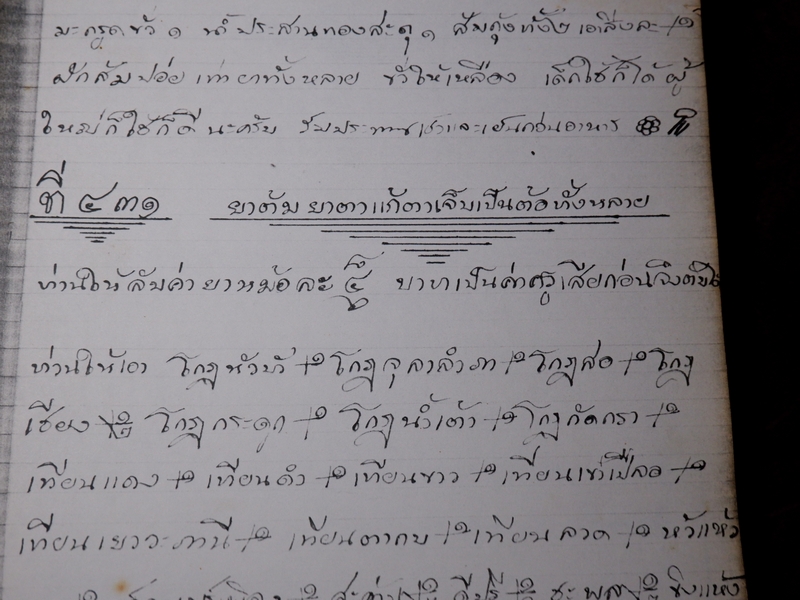 มะกรูดขั้ว ๑ น้ำประสานทองสะตุ ๑ ส้มกุ้งทั้ง๒ เอาสิ่งละ ๑
ฝักส้มป่อย เท่ายาทั้งหลาย ขั้วให้เหลือง เด็กใช้ก็ได้ ผู้
ใหญ่ก็ใช้ก็ดี นะครับ รับประทานเช้าและเย็นก่อนอาหาร
ที่ ๔๓๑ ยาต้ม ยาตาแก้ตาเจ็บเป็นต้อทั้งหลาย
ท่านให้ ค่ายาหม้อละ ๔ บาทเป็นค่าครูเสียก่อนจึง
ท่านให้เอา โกฏหัวบัว ๑ โกฏจุลาลำภา ๑ โกฏสอ ๑ โกฏ
เชียง โกฏกระดูก ๑ โกฏน้ำเต้า ๑ โกฏกัดกรา ๑
เทียนแดง ๑ เทียนดำ ๑ เทียนขาว ๑ เทียนเข้าเปลือก ๑
เทียนเยาวภานี ๑ เทียนตากบ ๑ เทียนลวด ๑ หัวแห้ว
ดีปลี ชะพลู ขิงแห้ง